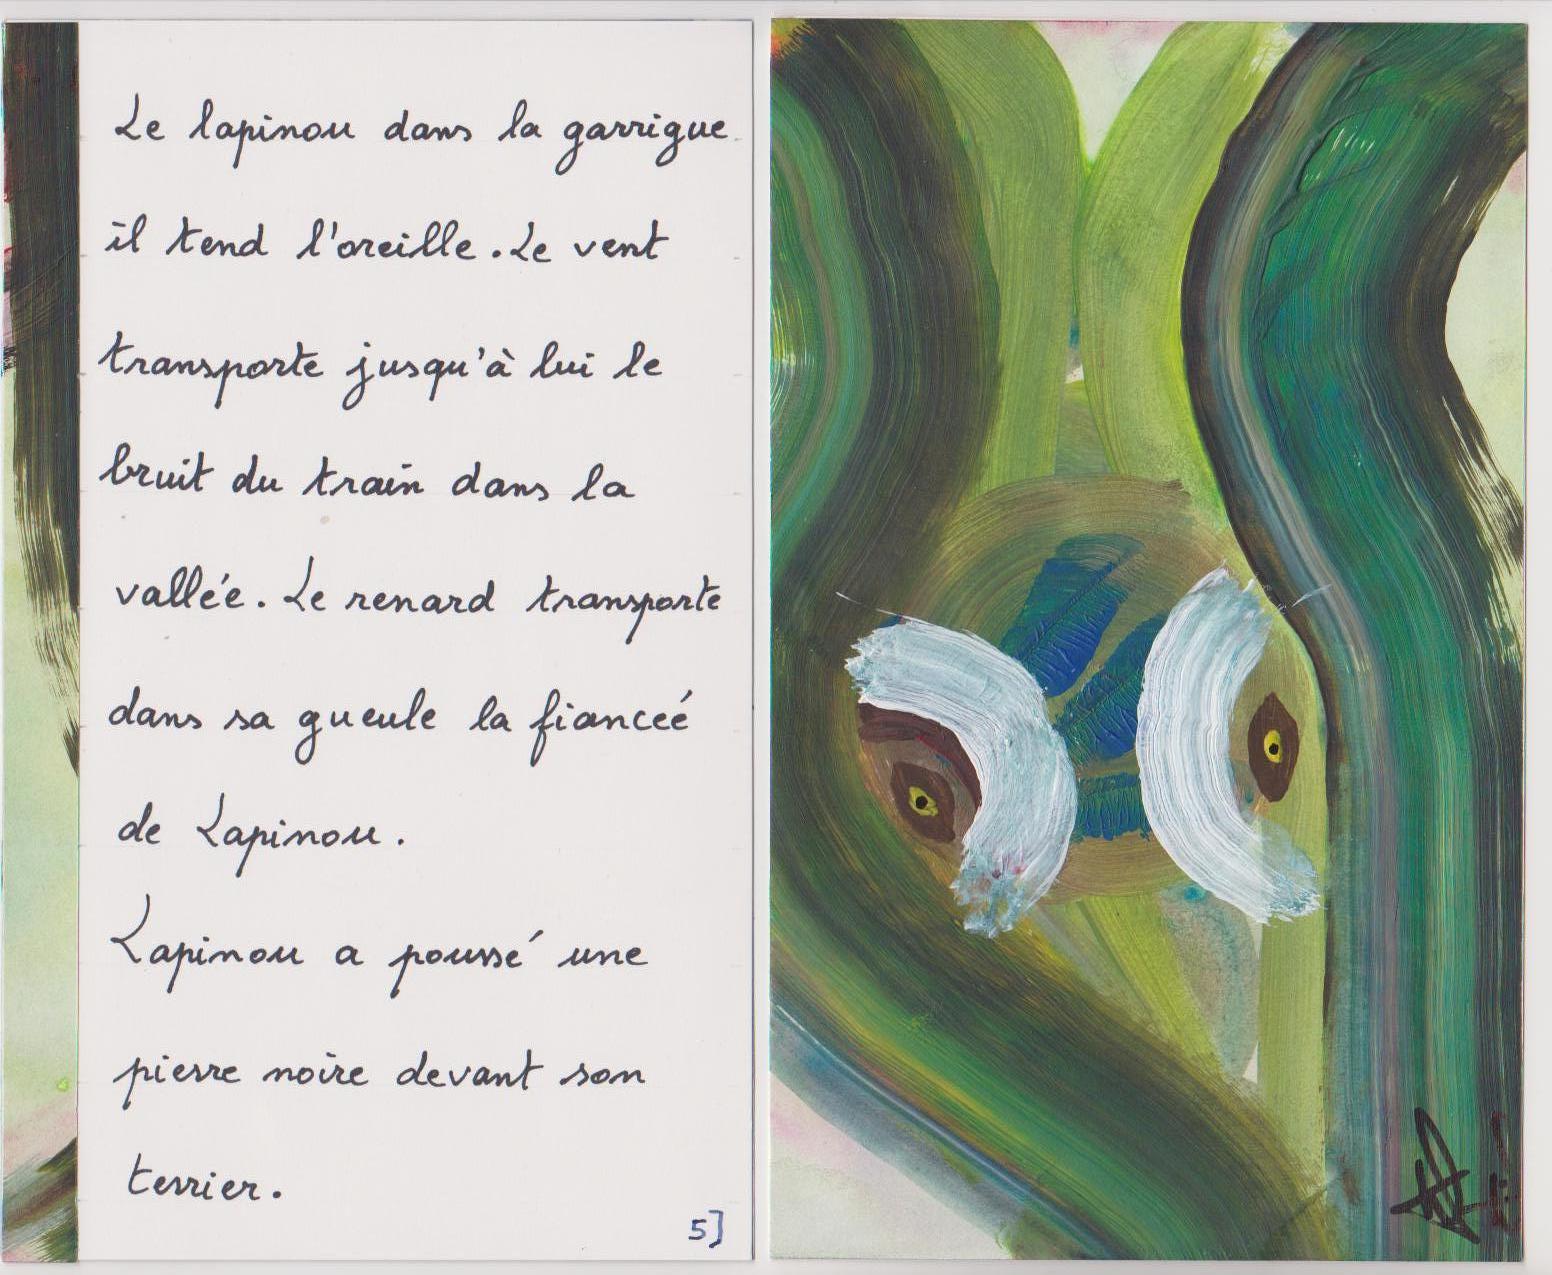 Le lapinou dans la garrigue
il tend l'oreille. Le vent
transporte jusqu'à lui le
bruit du train dans la
vallée. Le renard transporte
dans sa gueule la fianceé
de Lapinou.
Lapinou a poussé une
pierre noire devant son
terrier.
5]